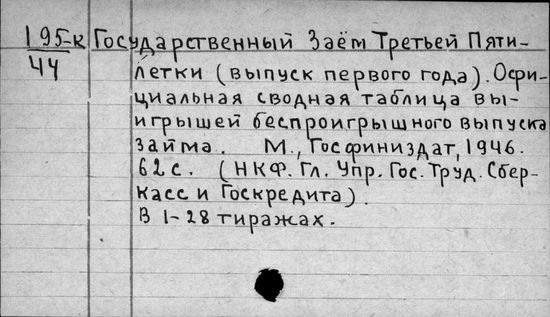 195-к Государственный Заём Третьей Пяти-
44 летки (выпуск первого года). Офи-
циальная сводная таблица вы-
игрышей беспроигрышного выпуска
займа. М., Госфиниздат, 1946.
62 с. (НКФ. Гл. Упр. Гос. Труд. Сбер-
касс и Госкредита).
В 1-28 тиражах.